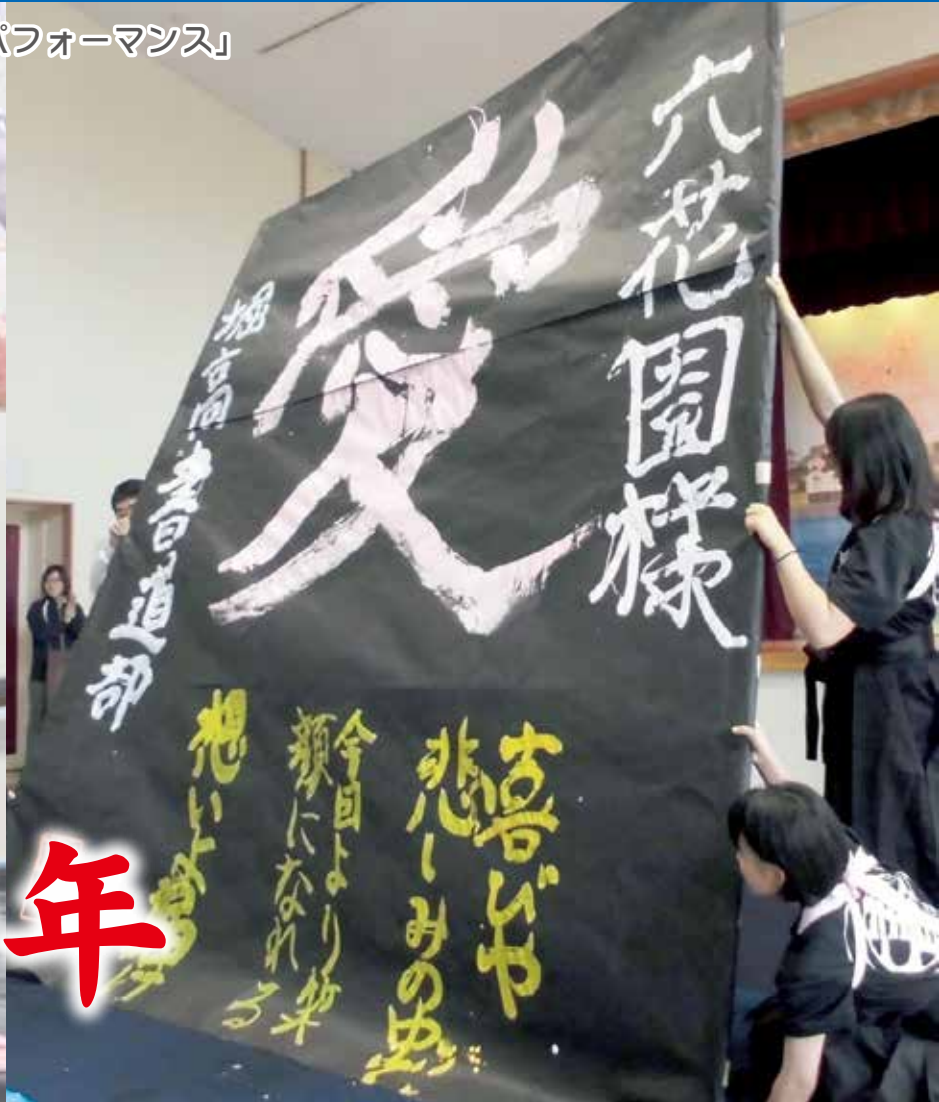 パフォーマンス」
六花園様
愛
堀高書道部
喜びや
悲しみの
今日より笑
顔になれる
想いよ
年